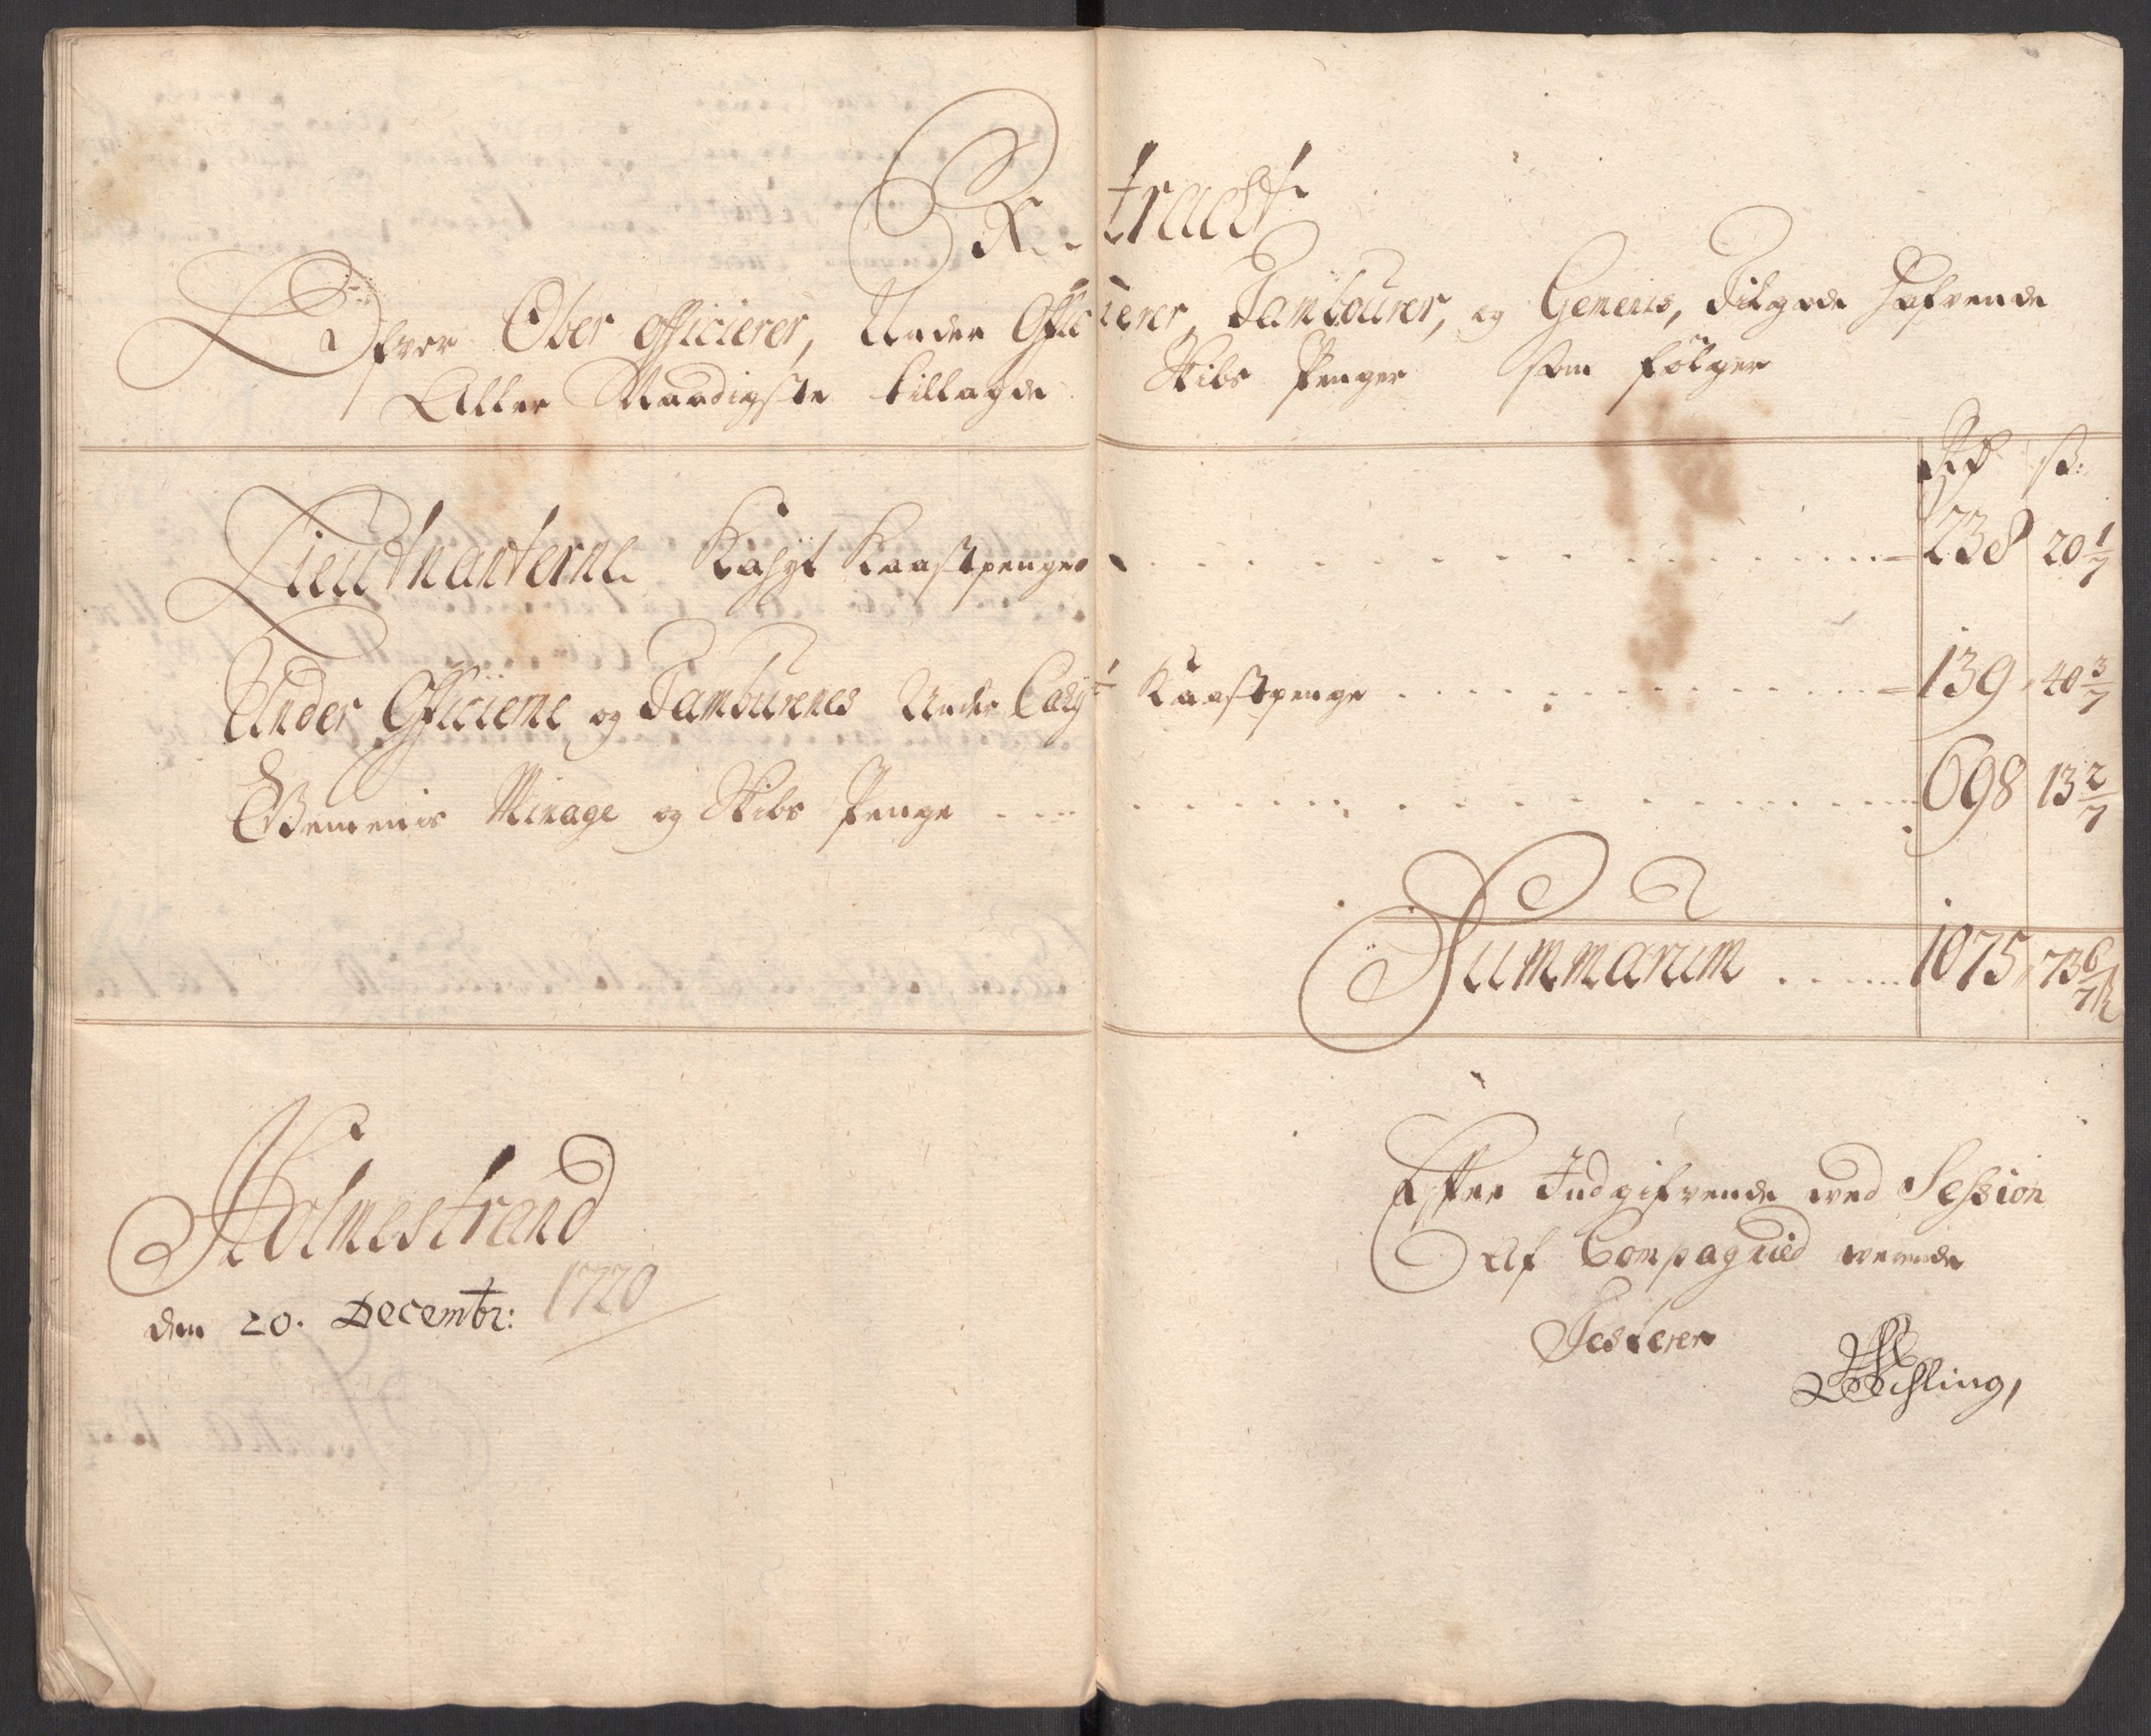 Extract
Ofver Ober officierer, Under Officierer, Tambourer, og Gemenis, Tilgode Hafvende
Aller Naadigste tillagde Skibs Penger som følger
Rd ß:
Lieutnanterne Kahyt Kaastpenge 238 20 1/7
Under Officierne og Tamburenes Under Cahyt Kaastpenge 139 40 3/7
Gemenis Minage og Skibs Penge 698 13 2/7
Summarum 1075 73 6/7 ß
Holmestrand
den 20. Decembr: 1720
Efter Indgifvende ved Session
Af Compagnied
Testerer